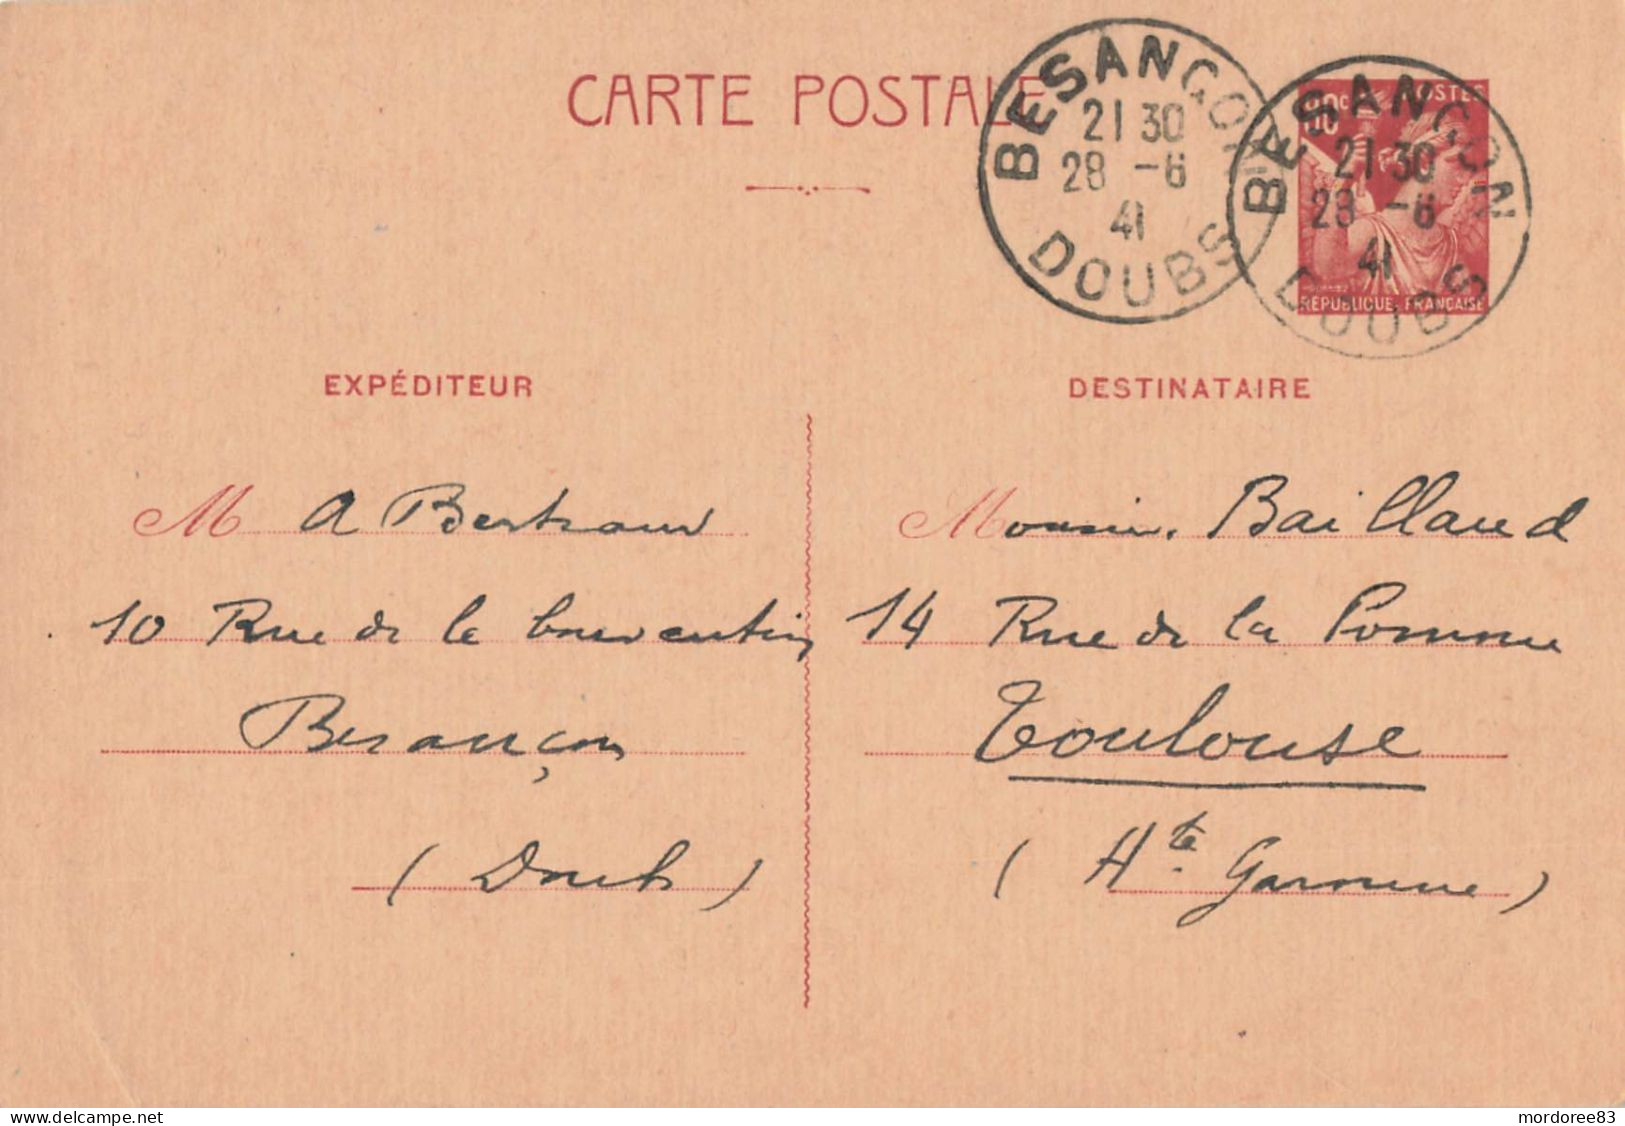 CARTE POSTALE
BESANÇON
21 30
28 -6
41
DOUBS
BESANÇON
21 30
28 -6
41
DOUBS
80c POSTES
RÉPUBLIQUE FRANÇAISE
EXPÉDITEUR
M A Bertrand
10 Rue de la
Besançon
(Doubs)
DESTINATAIRE
Monsieur Baillaud
14 Rue de la Pomme
Toulouse
(Hte Garonne)
mordoree83